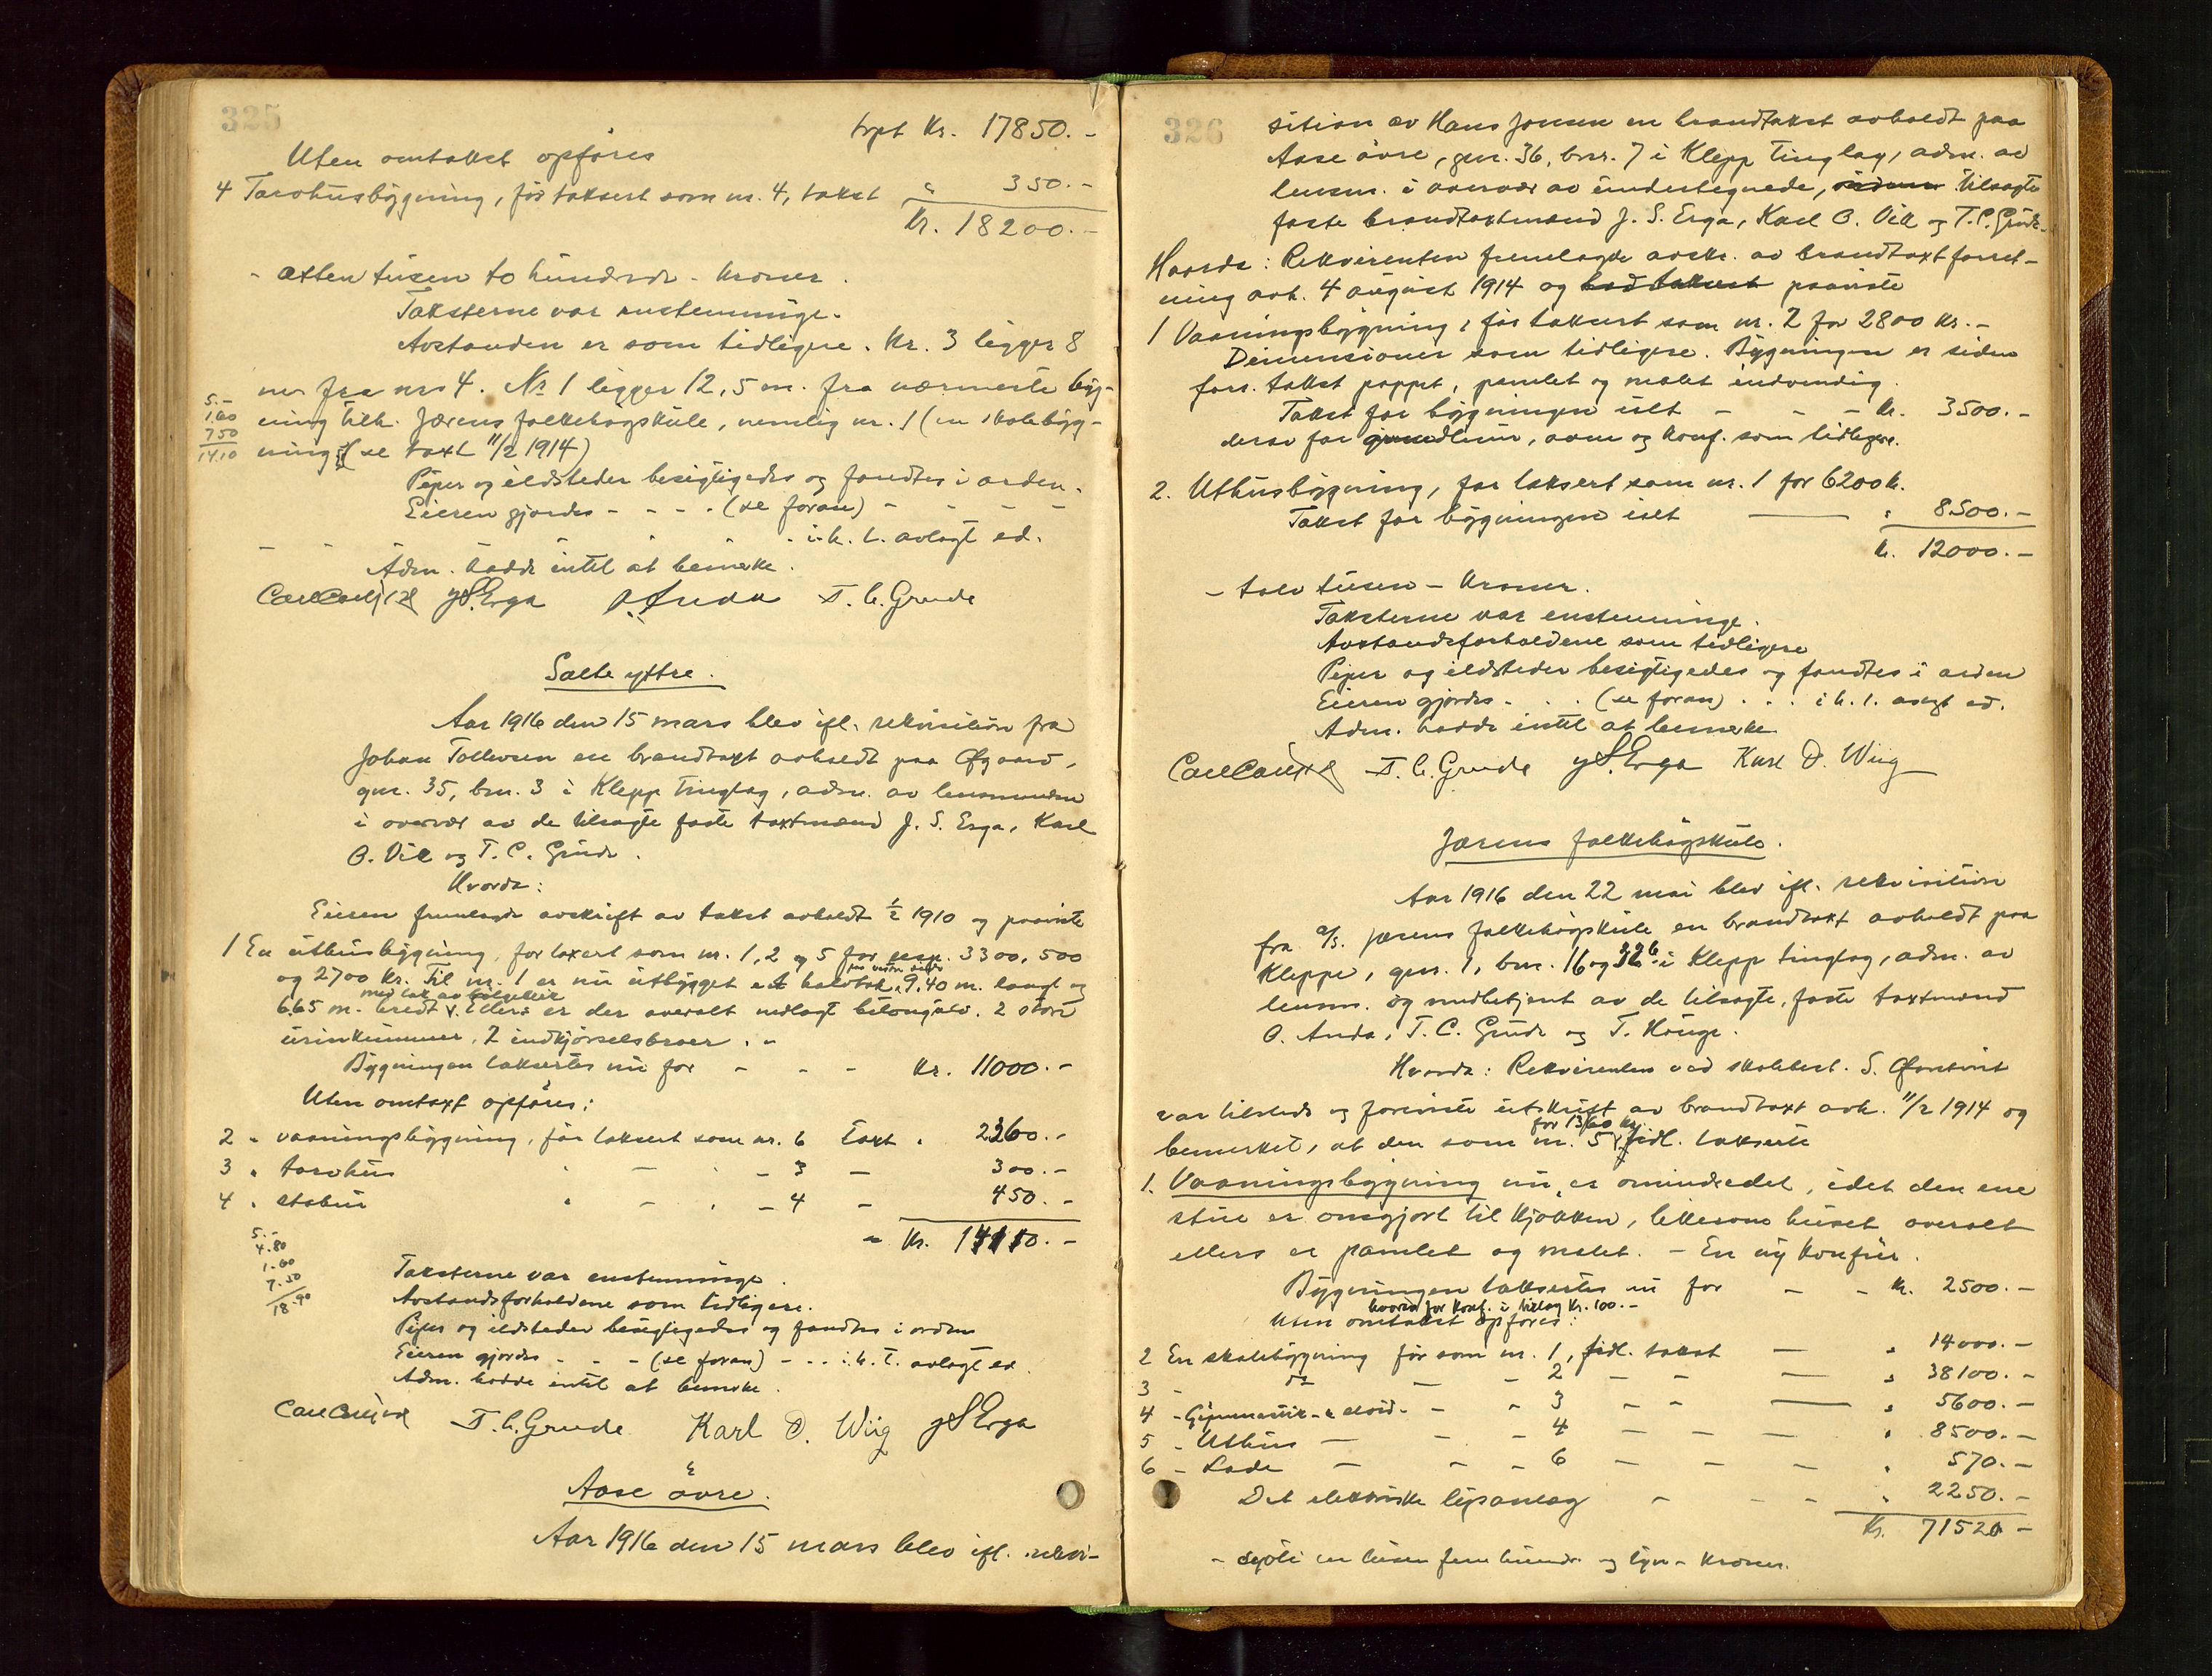 325
trpt Kr. 17850.-
Uten omtakst opføres
4 Tarvhusbygning, før taksert som nr. 4, takst " 350.-
Kr. 18200.-
- atten tusen to hundrede - kroner.
Taksterne var enstemmige.
Avstanden er som tidligere. Nr. 3 ligger 8
mr fra nrs 4. No 1 ligger 12,5 m. fra nærmeste byg-
5.-
1.60
7.50
14.10
ning tilh. Jærens folkehøgskule, nemlig nr. 1 (en skolebyg-
ning) (se taxt 11/2 1914)
Piper og ildsteder besigtigedes og fandtes i orden.
Eieren gjordes - - - (se foran) - - - -
- - - - i. h. t. avlagt ed.
Adm. hadde intet at bemerke.
J. S. Erga O. Anda T. C. Grude
Salte yttre.
Aar 1916 den 15 mars blev ifl. rekvisition fra
Johan Tollevsen en brandtaxt avholdt paa Øgaard,
gnr. 35, bnr. 3 i Klepp Tinglag, adm. av lensmanden
i overvær av de tilsagte faste taxtmænd J. S. Erga, Karl
O. Vik og T. C. Grude.
Hvorda:
Eieren fremlagde avskrift av takst avholdt 1/2 1910 og paaviste
1 En uthusbygning, før taxert som nr. 1, 2 og 5 for resp. 3300, 500
og 2700 Kr. Til nr. 1 er nu utbygget et halvtak 9,40 m. langt og
6.65 m. bredt. Ellers er der overalt nedlagt betongulv. 2 store
urinkummer, 2 indkjørselsbroer.
Bygningen taksertes nu for - - - Kr. 11000.-
Uten omtaxt opføres:
2 " vaaningsbygning, før taksert som nr. 6 Taxt " 2360.-
3 " tarvhus " - " - 3 - 300.-
4 " stabur " - " - 4 - 450.-
" Kr. 14110.-
5.-
4.80
1.60
7.50
18.90
Taksterne var enstemmige.
Avstandsforholdene som tidligere.
Piper og ildsteder besigtigedes og fandtes i orden
Eieren gjordes - - - (se foran) - - - i. h. t. avlagt ed.
Adm. hadde intet at bemerke.
T. C. Grude Karl O. Wiig J. S. Erga
Aase øvre.
Aar 1916 den 15 mars blev ifl. rekvi-
326
sition av Hans Jonsen en brandtakst avholdt paa
Aase øvre, gnr. 36, bnr. 7 i Klepp Tinglag, adm. av
lensm. i overvær av undertegnede, tilsagte
faste brandtaxtmænd J. S. Erga, Karl O. Vik og T. C. Grude.
Hvorda: Rekvirenten fremlagde avskr. av brandtaxtforret-
ning avh. 4 august 1914 og paaviste
1 Vaaningsbygning, før taksert som nr. 2 for 2800 Kr.-
Dimensioner som tidligere. Bygningen er siden
forr. takst pappet, panelet og malet indvendig.
Takst for bygningen ialt - - - Kr. 3500.-
derav for grundmur, ovne og komf. som tidligere.
2. Uthusbygning, før taksert som nr. 1 for 6200 k.
Takst for bygningen ialt — " 8500.-
Kr. 12000.-
- tolv tusen - kroner.
Taksterne var enstemmige.
Avstandsforholdene som tidligere
Piper og ildsteder besigtigedes og fandtes i orden
Eieren gjordes - . . (se foran) . . . i h. t. avlagt ed.
Adm. hadde intet at bemerke
T. C. Grude J. S. Erga Karl O. Wiig
Jærens folkehøgskule.
Aar 1916 den 22 mai blev ifl. rekvisition
fra A/S. Jærens folkehøgskule en brandtaxt avholdt paa
Kleppe, gnr. 1, bnr. 16 og 326 i Klepp tinglag, adm. av
lensm. og medbetjent av de tilsagte, faste taxtmænd
O. Anda, T. C. Grude og T. Houge.
Hvorda: Rekvirenten ved skolebest. S.
var tilstede og foreviste utskrift av brandtaxt avh. 11/2 1914 og
for 1360 kr.
bemerket, at den som nr. 5 tidl. takserte
1. Vaaningsbygning nu er omindredet, idet den ene
stue er omgjort til kjøkken, likesom huset overalt
ellers er panelet og malet. - En ny komfur.
Bygningen taksertes nu for - - Kr. 2500.-
hvorav for komf. i tillæg Kr. 100.-
Uten omtakst opføres:
2 En skolebygning før som nr. 1, tidl. takst — " 14000.-
3 - do - - 2 - - — " 38100.-
4 - Gymnastik- & sløid- - - 3 - - — " 5600.-
5 - Uthus - - - 4 - - - " 8500.-
6 - Lade - - - 6 - - - " 570.-
Det elektriske lysanlæg - - - " 2250.-
Kr. 71520 -
- sytti en tusen fem hundr. og tyve - kroner.